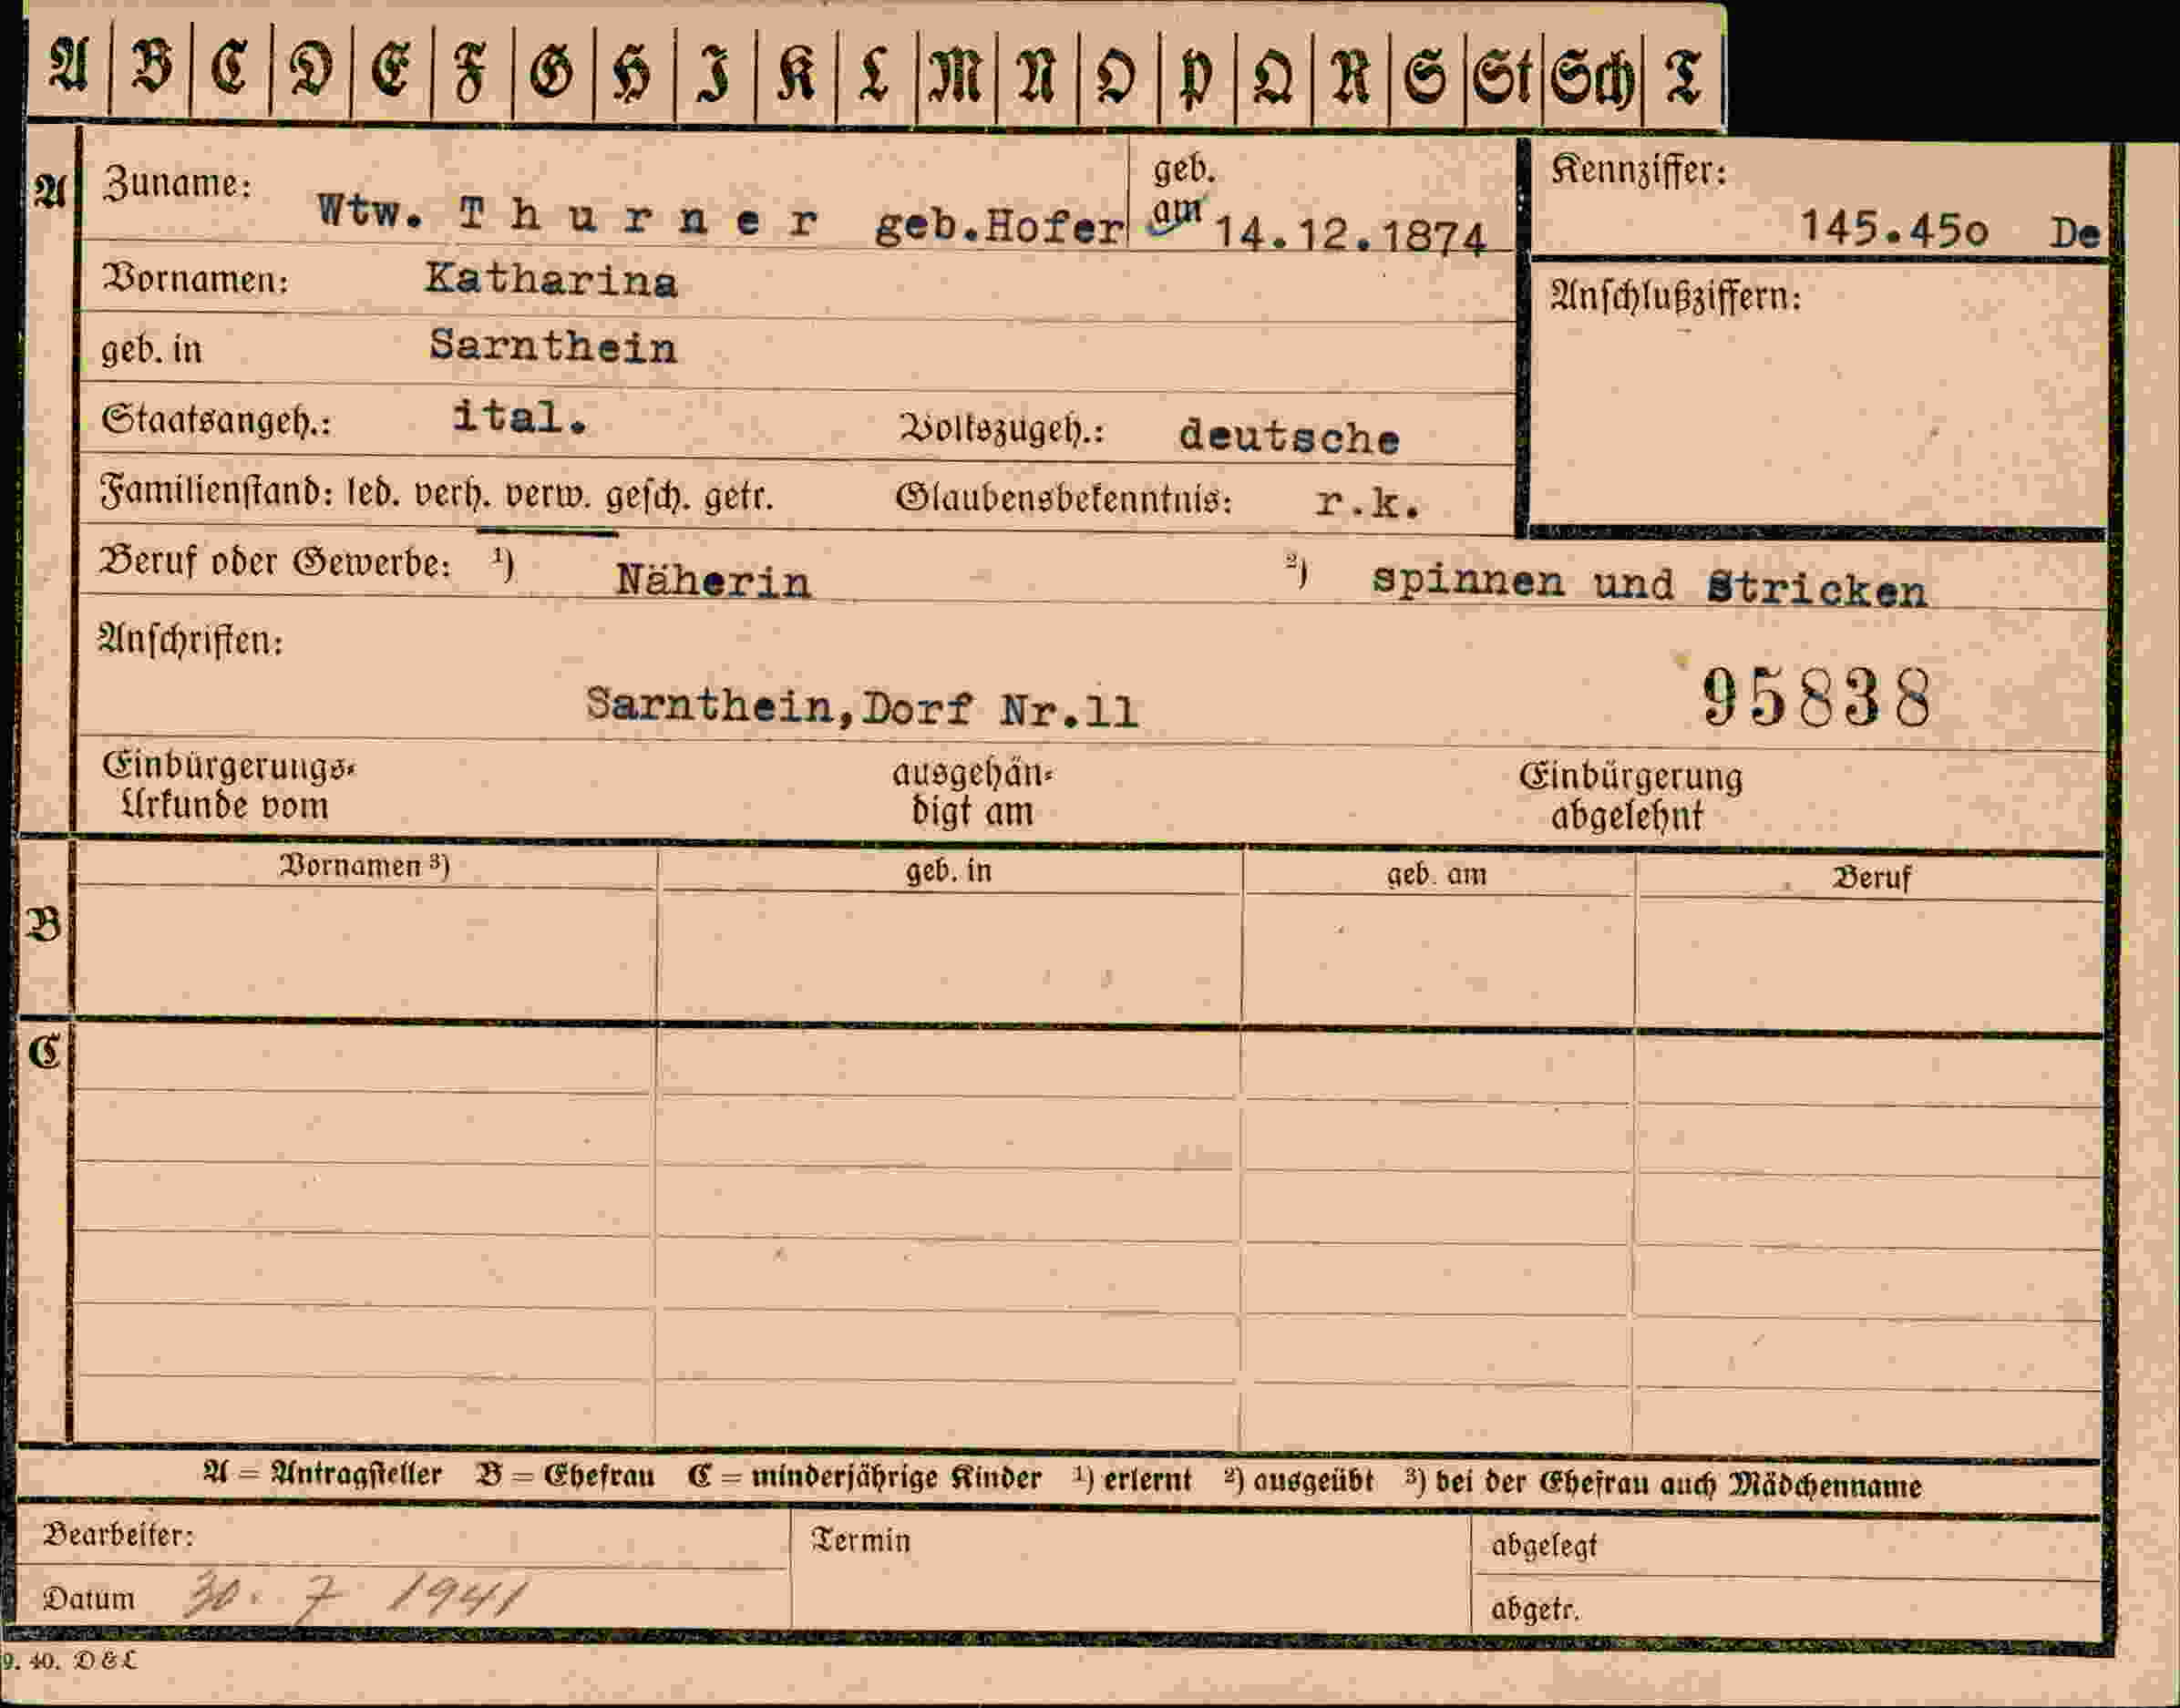 A B C D E F G H I K L M N O P Q R S St Sch T
A Zuname: Wtw. T h u r n e r geb.Hofer geb. am 14.12.1874
Kennziffer: 145.45o De
Vornamen: Katharina
Anschlußziffern:
geb. in Sarnthein
Staatsangeh.: ital. Volkszugeh.: deutsche
Familienstand: led. verh. verw. gesch. getr. Glaubensbekenntnis: r.k.
Beruf oder Gewerbe: ¹) Näherin ²) spinnen und stricken
Anschriften:
Sarnthein,Dorf Nr.11 95838
Einbürgerungs-
Urkunde vom
ausgehän-
digt am
Einbürgerung
abgelehnt
B Vornamen ³) geb. in geb. am Beruf
C
A = Antragsteller B = Ehefrau C = minderjährige Kinder ¹) erlernt ²) ausgeübt ³) bei der Ehefrau auch Mädchenname
Bearbeiter: Termin abgelegt
Datum 30. 7 1941 abgetr.
9. 40. D&L